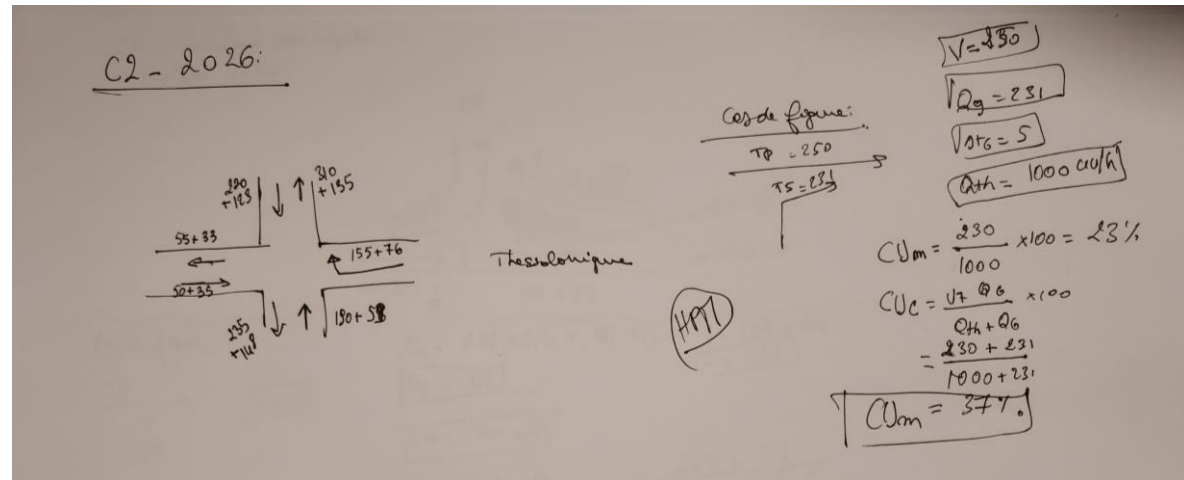 C2 - 2026:
220
+123
310
+135
55+33
155+76
50+35
235
+148
190+58
Thessolonique
Cas de figure:
TP = 250
TS = 231
HPM
V=230
Qg = 231
= 5
Qth = 1000 uv/h
CUm = 230 / 1000 x100 = 23%
CUc = V+ QG / Qth + QG x100
= 230 + 231 / 1000 + 231
CUm = 37%.